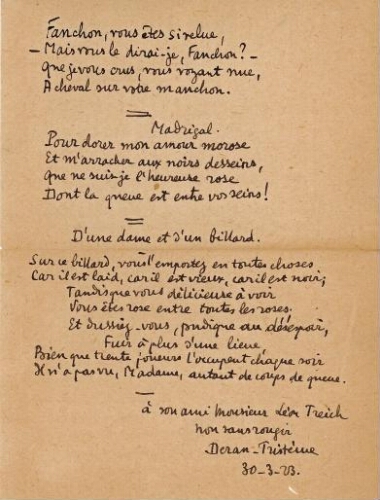 Fanchon, vous êtes si velue,
— Mais vous le dirai-je, Fanchon? —
Que je vous crus, vous voyant nue,
A cheval sur votre manchon.
Madrigal.
Pour dorer mon amour morose
Et m'arracher aux noirs desseins,
Que ne suis-je l'heureuse rose
Dont la queue est entre vos seins!
D'une dame et d'un billard.
Sur ce billard, vous l'emportez en toutes choses
Car il est laid, car il est vieux, car il est noir;
Tandis que vous délicieuse à voir
Vous êtes rose entre toutes les roses.
Et dussiez-vous, pudique au désespoir,
Fuir à plus d'une lieue
Bien que trente joueurs l'occupent chaque soir
Il n'a pas vu, Madame, autant de coups de queue.
à son ami Monsieur Léon Treich
non sans rougir
30-3-23.